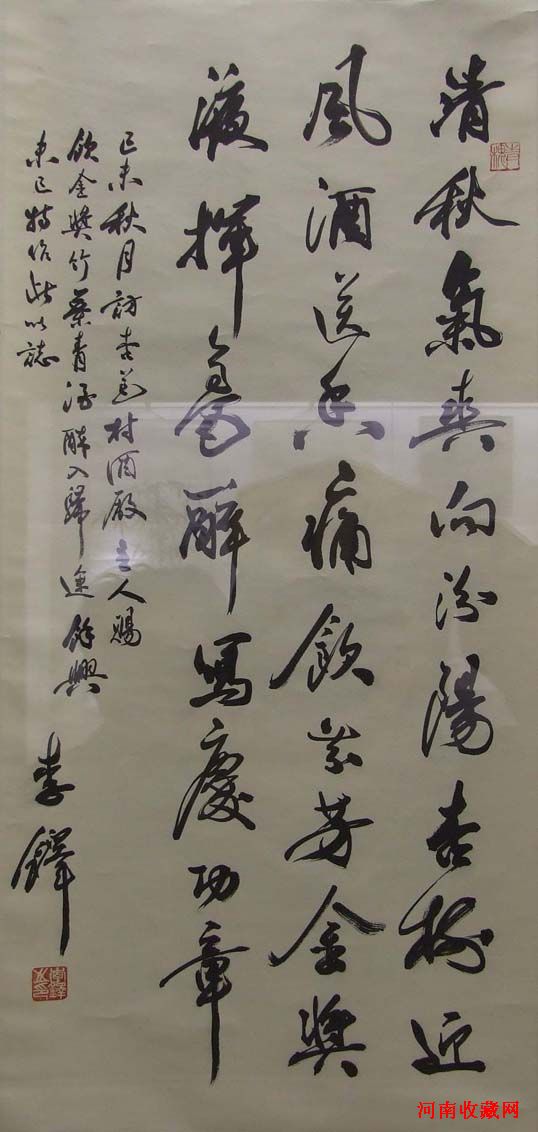 清秋氣爽向汾陽杏樹迎
風酒送香痛飲芬芳金獎
液揮毫醉寫慶功章
己未秋月訪杏花村酒廠主人賜
飲金獎竹葉青酒醉入歸途餘興
未已特作此以誌
李鐸
河南收藏网